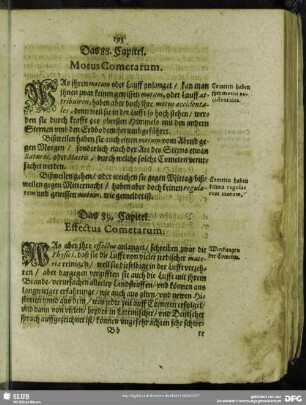 193
Das 88. Capitel.
Motus Cometarum.
WAs ihren motum oder Lauff anlanget / kan man
ihnen zwar keinen gewissen motum, oder Lauff at-
tribuiren, haben aber doch ihre motus accidenta-
les, denn weil sie in der Lufft so hoch stehen / wer-
den sie durch krafft des obersten Himmels mit den andern
Sternen umb den Erdbodem herumb geführet.
Cometen haben
ihre motus ac-
cidentales.
Bißweilen haben sie auch einen motum vom Abend ge-
gen Morgen / sonderlich nach der Art des Sterns etwan
Saturni, oder Martis, durch welche solche Cometen verur-
sachet werden.
Bißweilen gehen / oder weichen sie gegen Mittag / biß-
weilen gegen Mitternacht / haben aber doch keinen regula-
rem und gewissen motum, wie gemeldet ist.
Cometen haben
keinen regula-
rem motum,
Das 89. Capitel.
Effectus Cometarum.
WAs aber ihre effectus anlanget / schreiben zwar die
Physici, daß sie die Lufft von vieler irrdischer ma-
teria reinigen / weil sie dieselbige in der Lufft verzeh-
ren / aber dargegen vergifften sie auch die Lufft mit ihrem
Brande / verursachen allerley Landstraffen / und können aus
langwiriger erfahrunge / wie auch aus alten / und newen Hi-
storien und aus dem / was jeder zeit auff Cometen erfolget /
und dann von vielen / beydes in Lateinischer / und Deutscher
sprach auffgezeichnet ist / können ungefehr achten sehr schwe-
Wirckungen
der Cometen.
Bb
re
SLUB
DFG